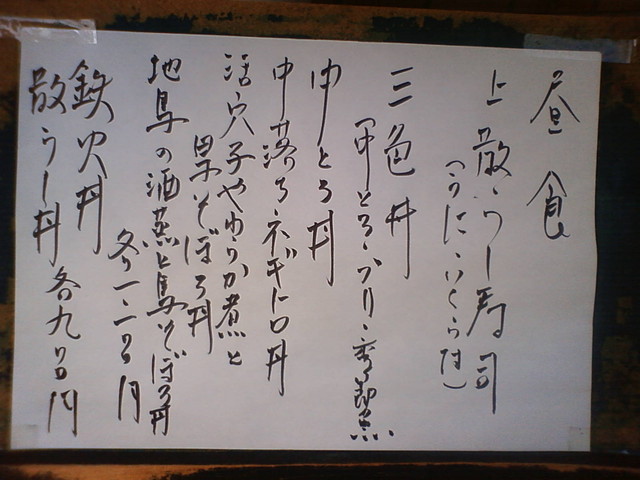 昼食
上散らし寿司
(うにいくら付)
三色丼
(中とろ・ぶり・
中とろ丼
中落ち・ネギトロ丼
活穴子やわらか煮と
鳥そぼろ丼
地鳥の酒蒸と鳥そぼろ丼
各一、二〇〇円
鉄火丼
散らし丼 各九〇〇円